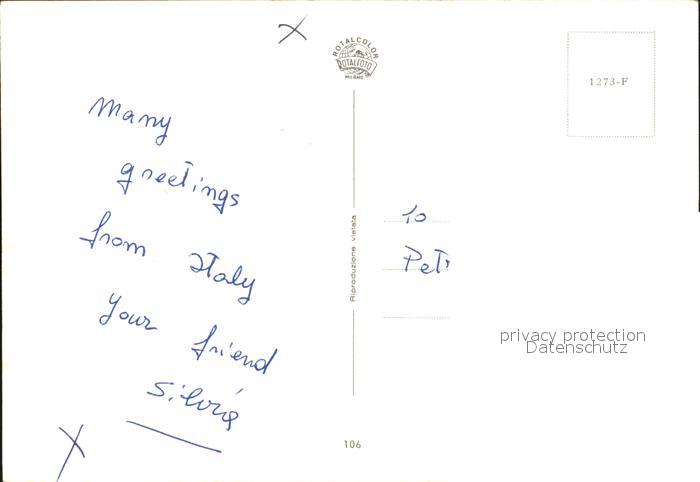 Many
greetings
from Italy
Your friend
Silvia
ROTALCOLOR
ROTALFOTO
MILANO
1273-F
Riproduzione vietata
To
Pet
privacy protection
Datenschutz
106